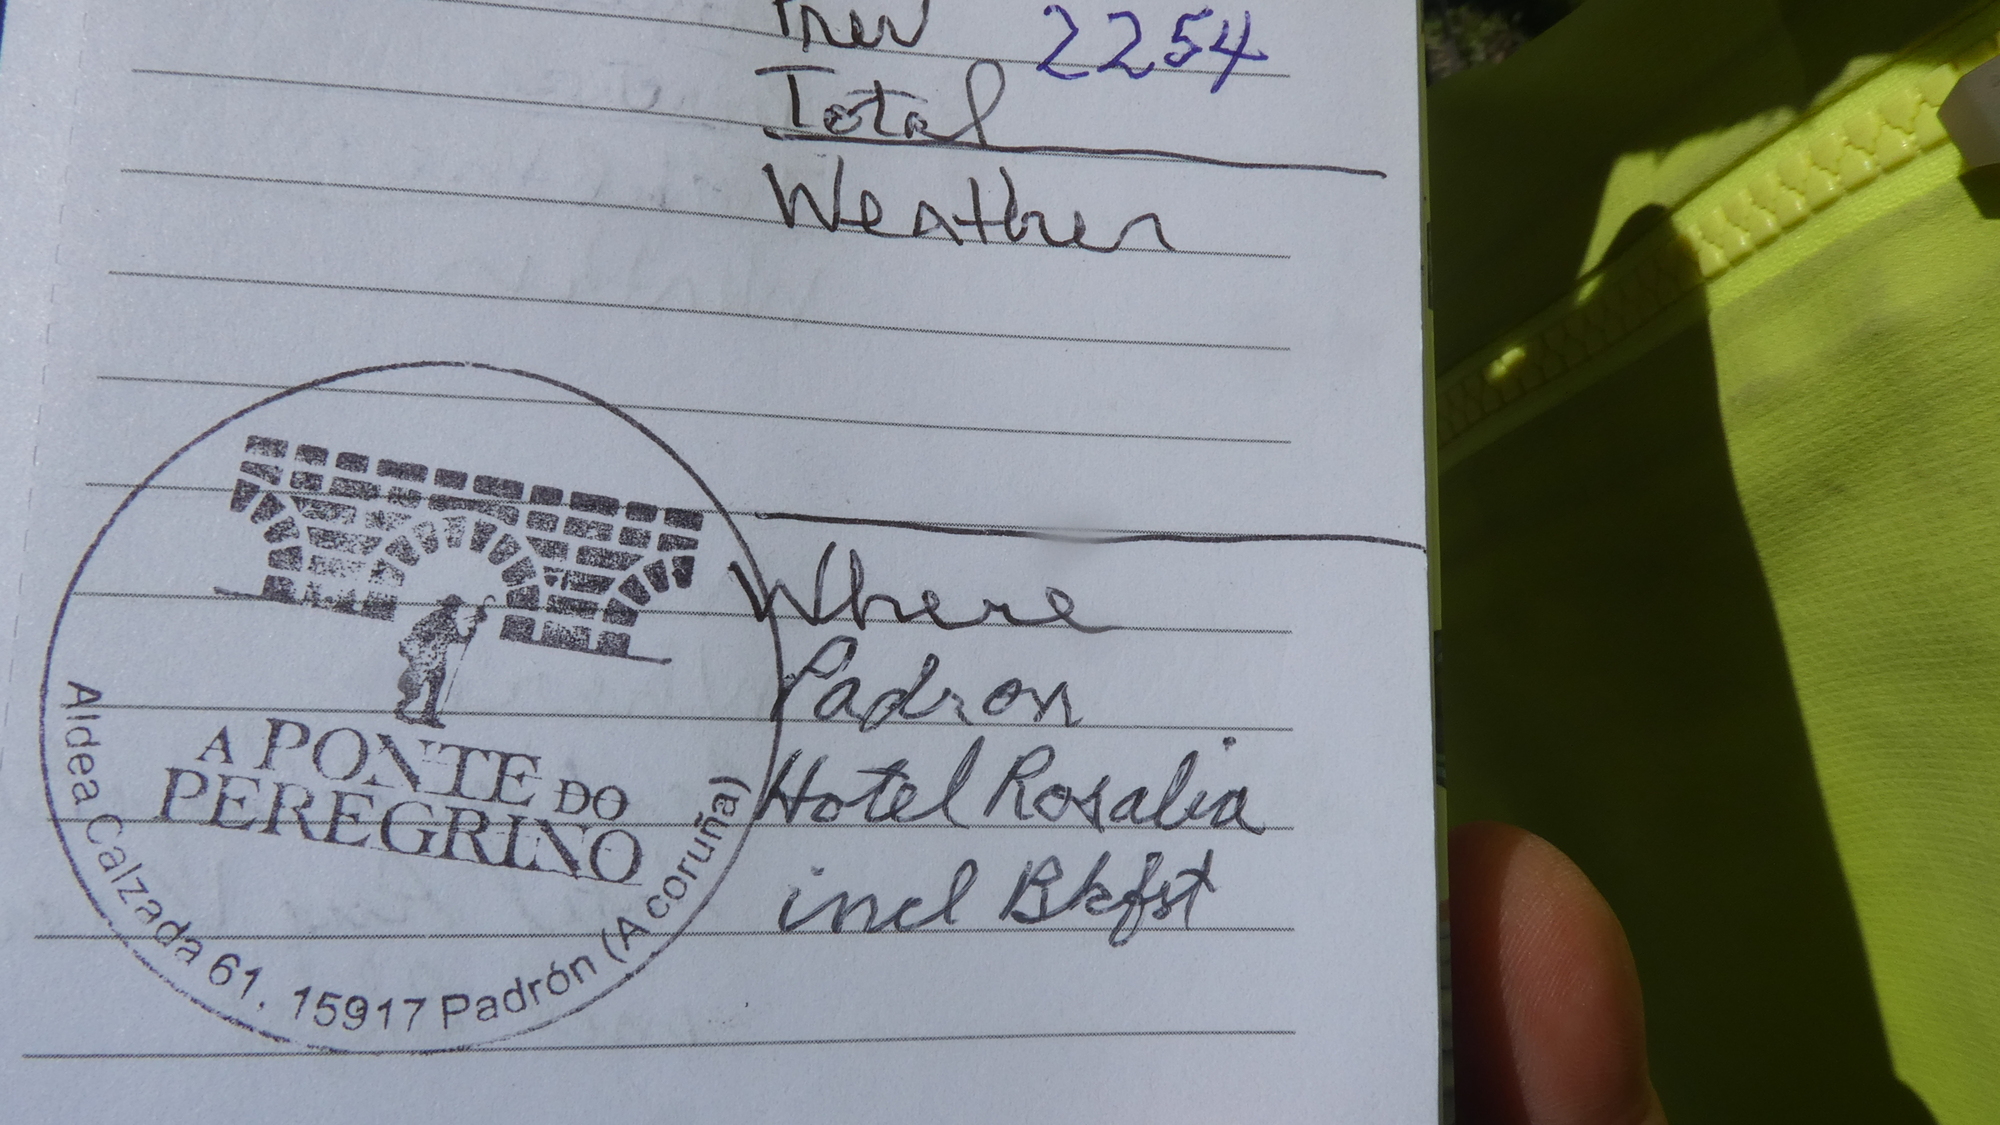 Prev 2254
Total
Weather
Where
Padron
Hotel Rosalia
incl Bkfst
A PONTE DO
PEREGRINO
Aldea Calzada 61, 15917 Padrón (A coruña)